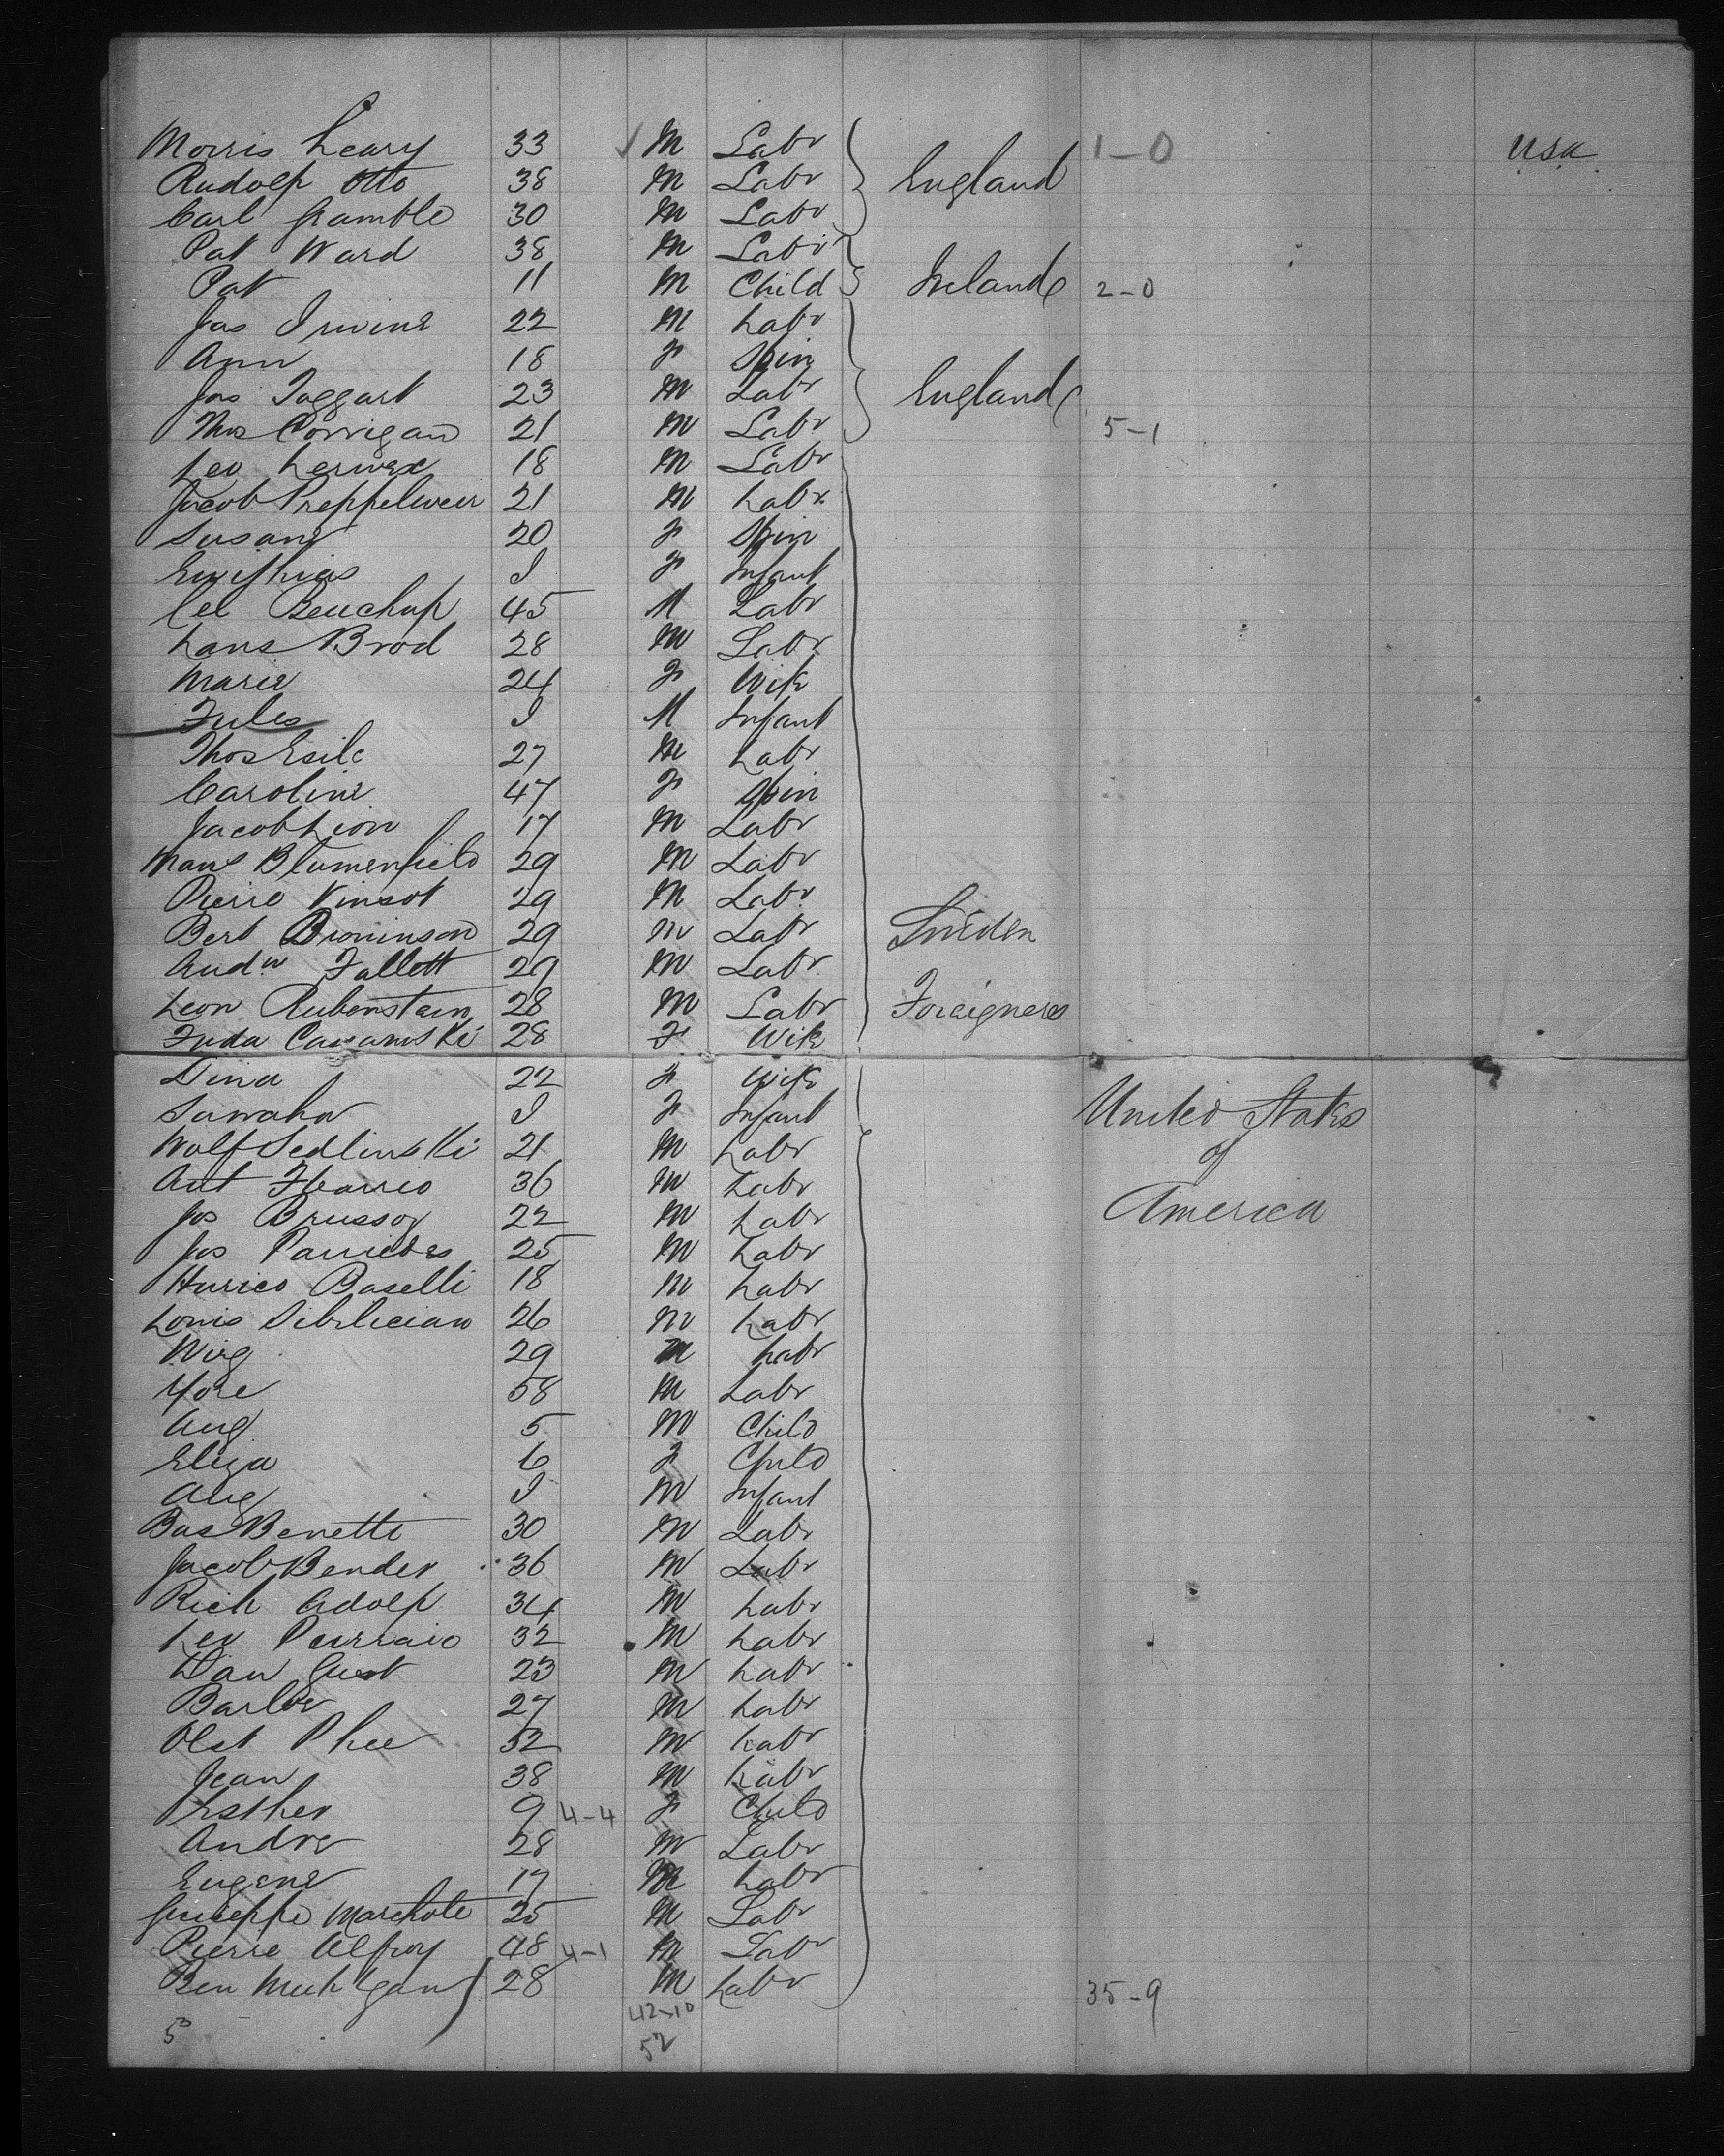 Morris Leary 33 M Labr England 1-0 USA
Rudolf Otto 38 M Labr
Carl Gramble 30 M Labr
Pat Ward 38 M Labr
Pat 11 M Child Ireland 2-0
Jas Irvine 22 M Labr
Ann 18 F Spin
Jas Taggart 23 M Labr England
Thos Corrigan 21 M Labr 5-1
Leo 18 M Labr
Jacob Preppelweir 21 M Labr
Susane 20 F Spin
I F Infant
Cel Beuchap 45 M Labr
Lans Brod 28 M Labr
Marie 24 F Wife
Jules I M Infant
Thos Esile 27 M Labr
Caroline 47 F Spin
Jacob Lion 17 M Labr
Mans Blumenfield 29 M Labr
Pierre Vinsot 29 M Labr
Bert Broninson 29 M Labr Sweden
Andw Fallett 29 M Labr
Leon Rubenstein 28 M Labr Foreigners
Juda 28 F Wife
Dina 22 F Wife
Sarraha I F Infant United States
Wolf Sedlinski 21 M Labr of
Ant 36 M Labr
Jos Brussoy 22 M Labr America
Jos 25 M Labr
Hurico Baselli 18 M Labr
Louis Sibilician 26 M Labr
Wirg 29 M Labr
Yore 58 M Labr
Aug 5 M Child
Eliza 6 F Child
Aug I M Infant
Bas Benetti 30 M Labr
Jacob Bender 36 M Labr
Rich Adolf 34 M Labr
Leo Perraio 32 M Labr
Dan Guest 23 M Labr
Barloe 27 M Labr
Olst Phee 32 M Labr
Jean 38 M Labr
Esther 9 4-4 F Child
Andre 28 M Labr
Eugene 17 M Labr
Guiseppe Marchote 25 M Labr
Pierre Alfroy 48 4-1 M Labr
Ben 28 M Labr 35-9
42-10
53
52